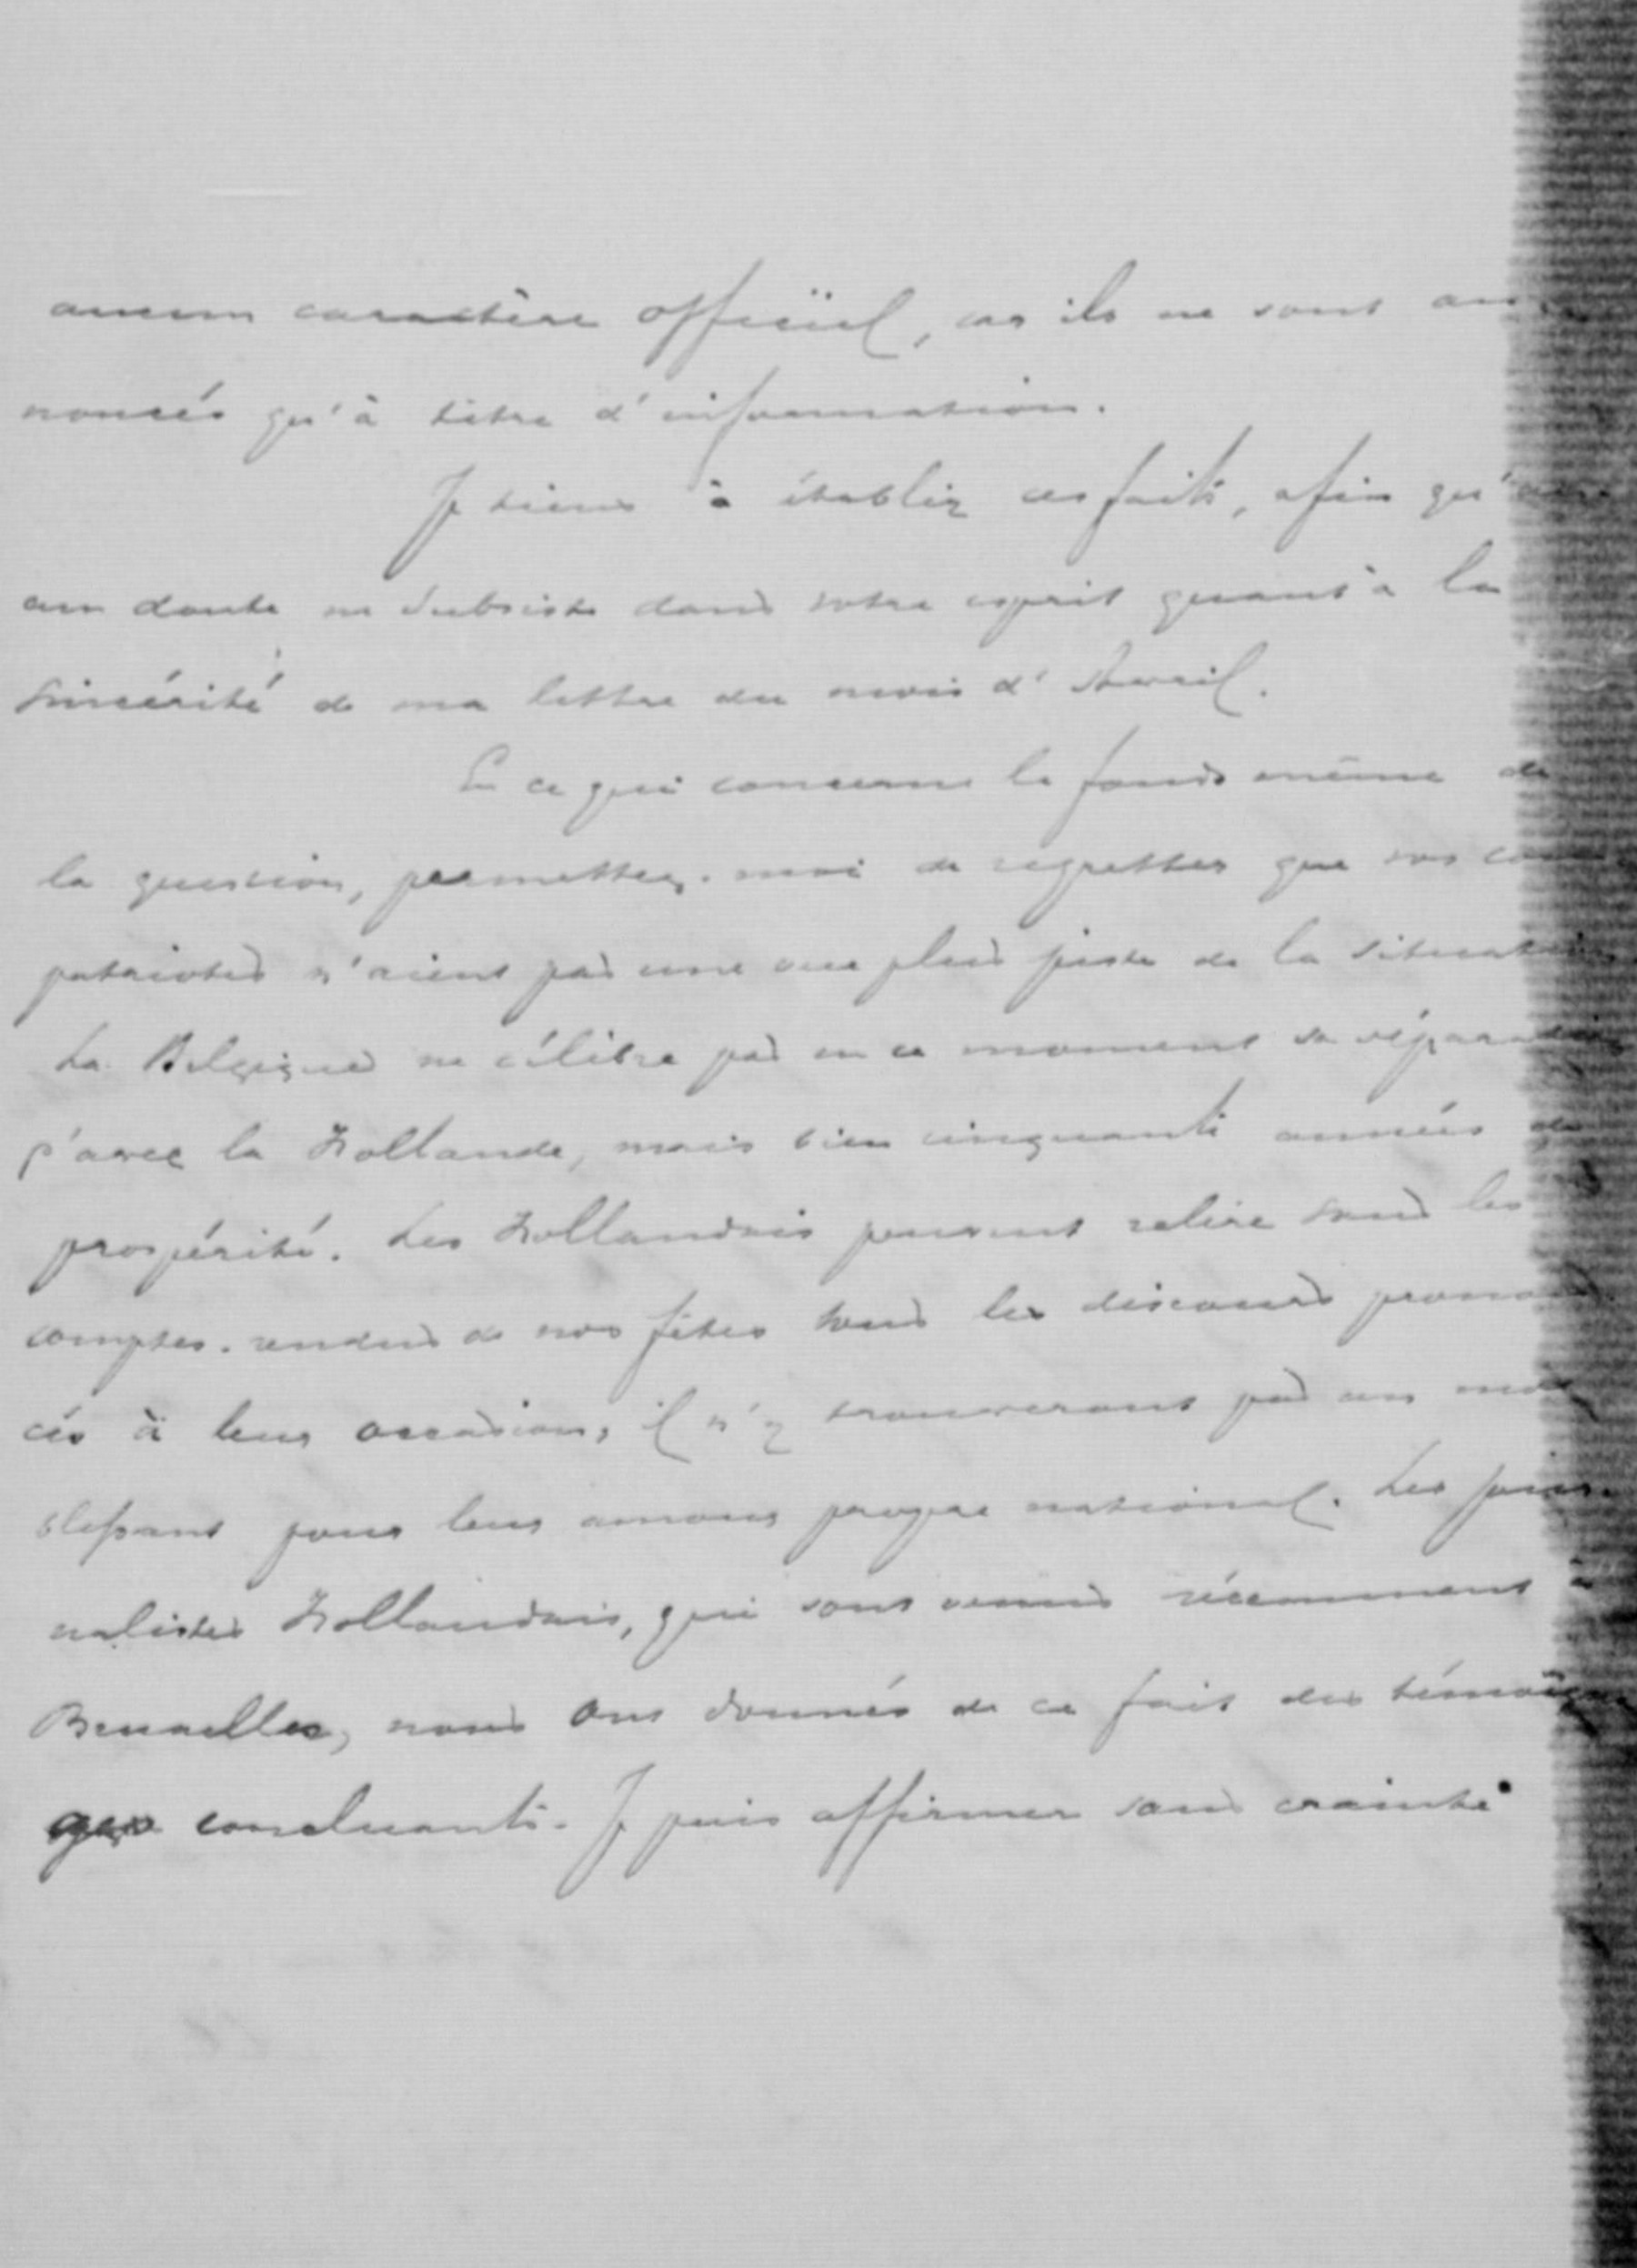 aucun caractère officiel, car ils ne sont an
noncés qu'à titre d'information.
Je tiens à établir ces faits, afin qu'au
cun doute ne subsiste dans votre esprit quant à la
sincérité de ma lettre du mois d'Avril.
En ce qui concerne le fonds même de
la question, permettez-moi de regretter que vos com
patriotes n'aient pas une vue plus juste de la situation
La Belgique ne célèbre pas en ce moment sa séparation
d'avec la Hollande, mais bien cinquante années de
prospérité. Les Hollandais peuvent relire tous les
comptes-rendus de nos fêtes tous les discours pronon
cés à leur occasion, il n'y trouveront pas un mot
blessant pour leur amour propre national. Les jour-
nalistes Hollandais, qui sont venus récemment à
Bruxelles, nous ont donnés de ce fait des témoigna
ges concluants. Je puis affirmer sans crainte